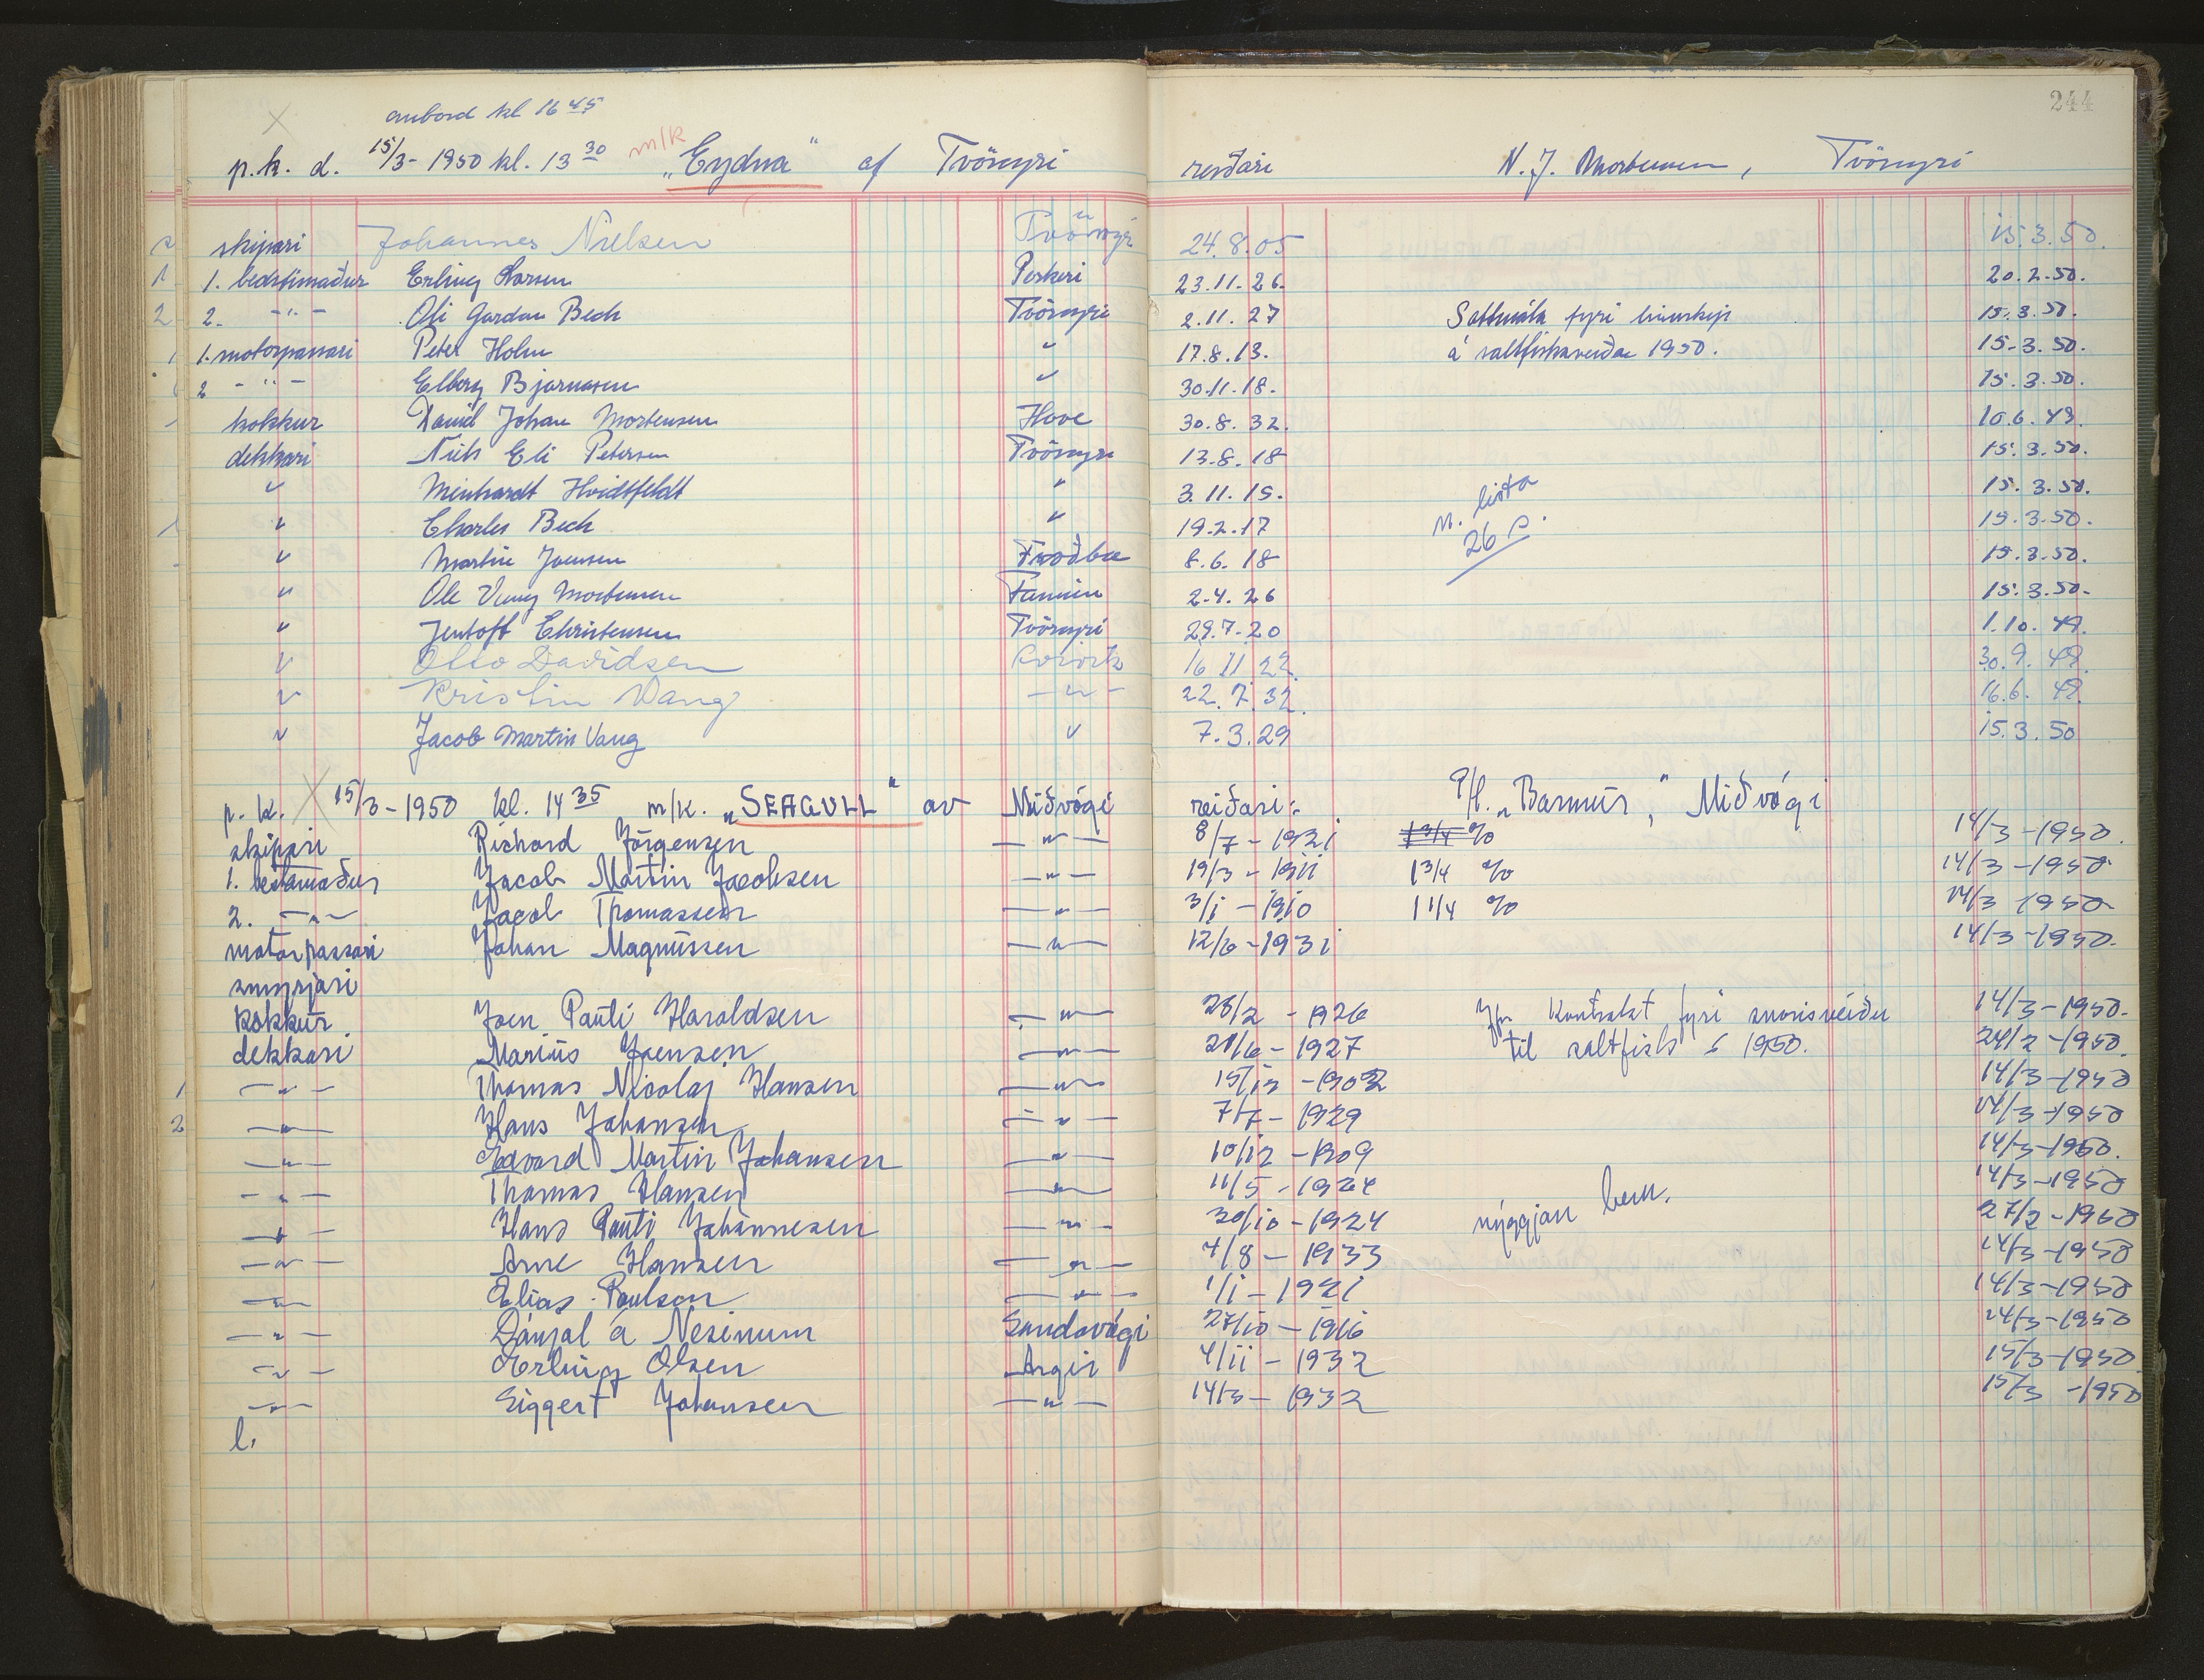 244
anbord kl 16 45
p.k. d. 15/3-1950 kl. 13 30 m/k "Eydna" af Tvöroyri reiðari N. J. Mortensen, Tvöroyri
2 skipari Johannes Nielsen Tvöroyri 24.8.05 15.3.50.
1 1. bedstimaður Erling Larsen Porkeri 23.11.26. 20.2.50.
2 2. -"- Oli Gardar Bech Tvöroyri 2.11.27 Sáttmála fyri línuskip 15.3.50.
1 1. motorpassari Peter Holm " 17.8.13. á saltfiskaveiðu 1950. 15.3.50.
2 -"- Elberg Bjarnason " 30.11.18. 15.3.50.
kokkur David Johan Mortensen Hove 30.8.32. 10.6.49.
dekkari Niels Eli Petersen Tvöroyri 13.8.18 15.3.50.
" Meinhardt Hvidtfeldt " 3.11.15. 15.3.50.
1 " Charles Bech " 19.2.17 m. lista 26 P. 15.3.50.
" Martin Joensen Froðbæ 8.6.18 15.3.50.
" Ole Viung Mortensen Famien 2.4.26 15.3.50.
" Jentoft Christensen Tvöroyri 29.7.20 1.10.49.
" Otto Davidsen 16.11.22. 30.9.49.
" Kristin Vang -"- 22.7.32. 16.6.49.
" Jacob Martin Vang " 7.3.29 15.3.50
p.k. 15/3-1950 kl. 14 35 m/k. "SEAGULL" av Miðvági reiðari: P/f. "Barmur", Miðvági
skipari Richard Jörgensen -"- 8/7-1921 1 3/4 % 14/3-1950
1. bestamaður Jacob Martin Jacobsen -"- 19/3-1911 1 3/4 % 14/3-1950
2. -"- Jacob Thomassen -"- 3/1-1910 1 1/4 % 14/3 1950
motorpassari Johan Magnussen -"- 12/6-1931 14/3-1950.
smyrjari
kokkur Joen Pauli Haraldsen -"- 28/2-1926 Kontrakt fyri snørisveiðu 14/3-1950.
dekkari Marius Joensen -"- 21/6-1927 til saltfisk í 1950. 24/2-1950
1 -"- Thomas Nicolaj Hansen -"- 15/12-1902 14/3-1950
2 -"- Hans Johansen -"- 7/7-1929 14/3-1950
-"- Edvard Martin Johansen -"- 10/12-1909 14/3-1950.
-"- Thomas Hansen -"- 11/5-1924 14/3-1950
-"- Hans Pauli Johannesen -"- 30/10-1924 nýggjan 27/2-1950
-"- Arne Hansen -"- 4/8-1933 14/3-1950
-"- Elias Poulson -"- 1/1-1921 14/3-1950
-"- Dánjal á Nesinum Sandavági 27/10-1916 14/3-1950
-"- Erling Olsen Argir 4/11-1932 15/3-1950
-"- Siggert Johansen -"- 14/3-1932 15/3-1950
l.